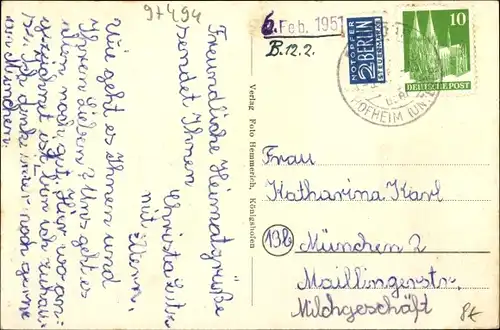 97494
6. Feb. 1951
B.12.2.
NOTOPFER
2 BERLIN
STEUERMARKE
10
DEUTSCHE POST
HOFHEIM (UN
Freundliche Heimatgrüße
sendet Ihnen
Christa
mit Eltern.
Wie geht es Ihnen und
Ihren Lieben? Uns geht es
noch gut. Hier
ist.
Ich denke immer noch gerne
an München.
Verlag Foto Hemmerich, Königshofen
Frau
Katharina Karl
13b
München 2
Maillingerstr.
Milchgeschäft